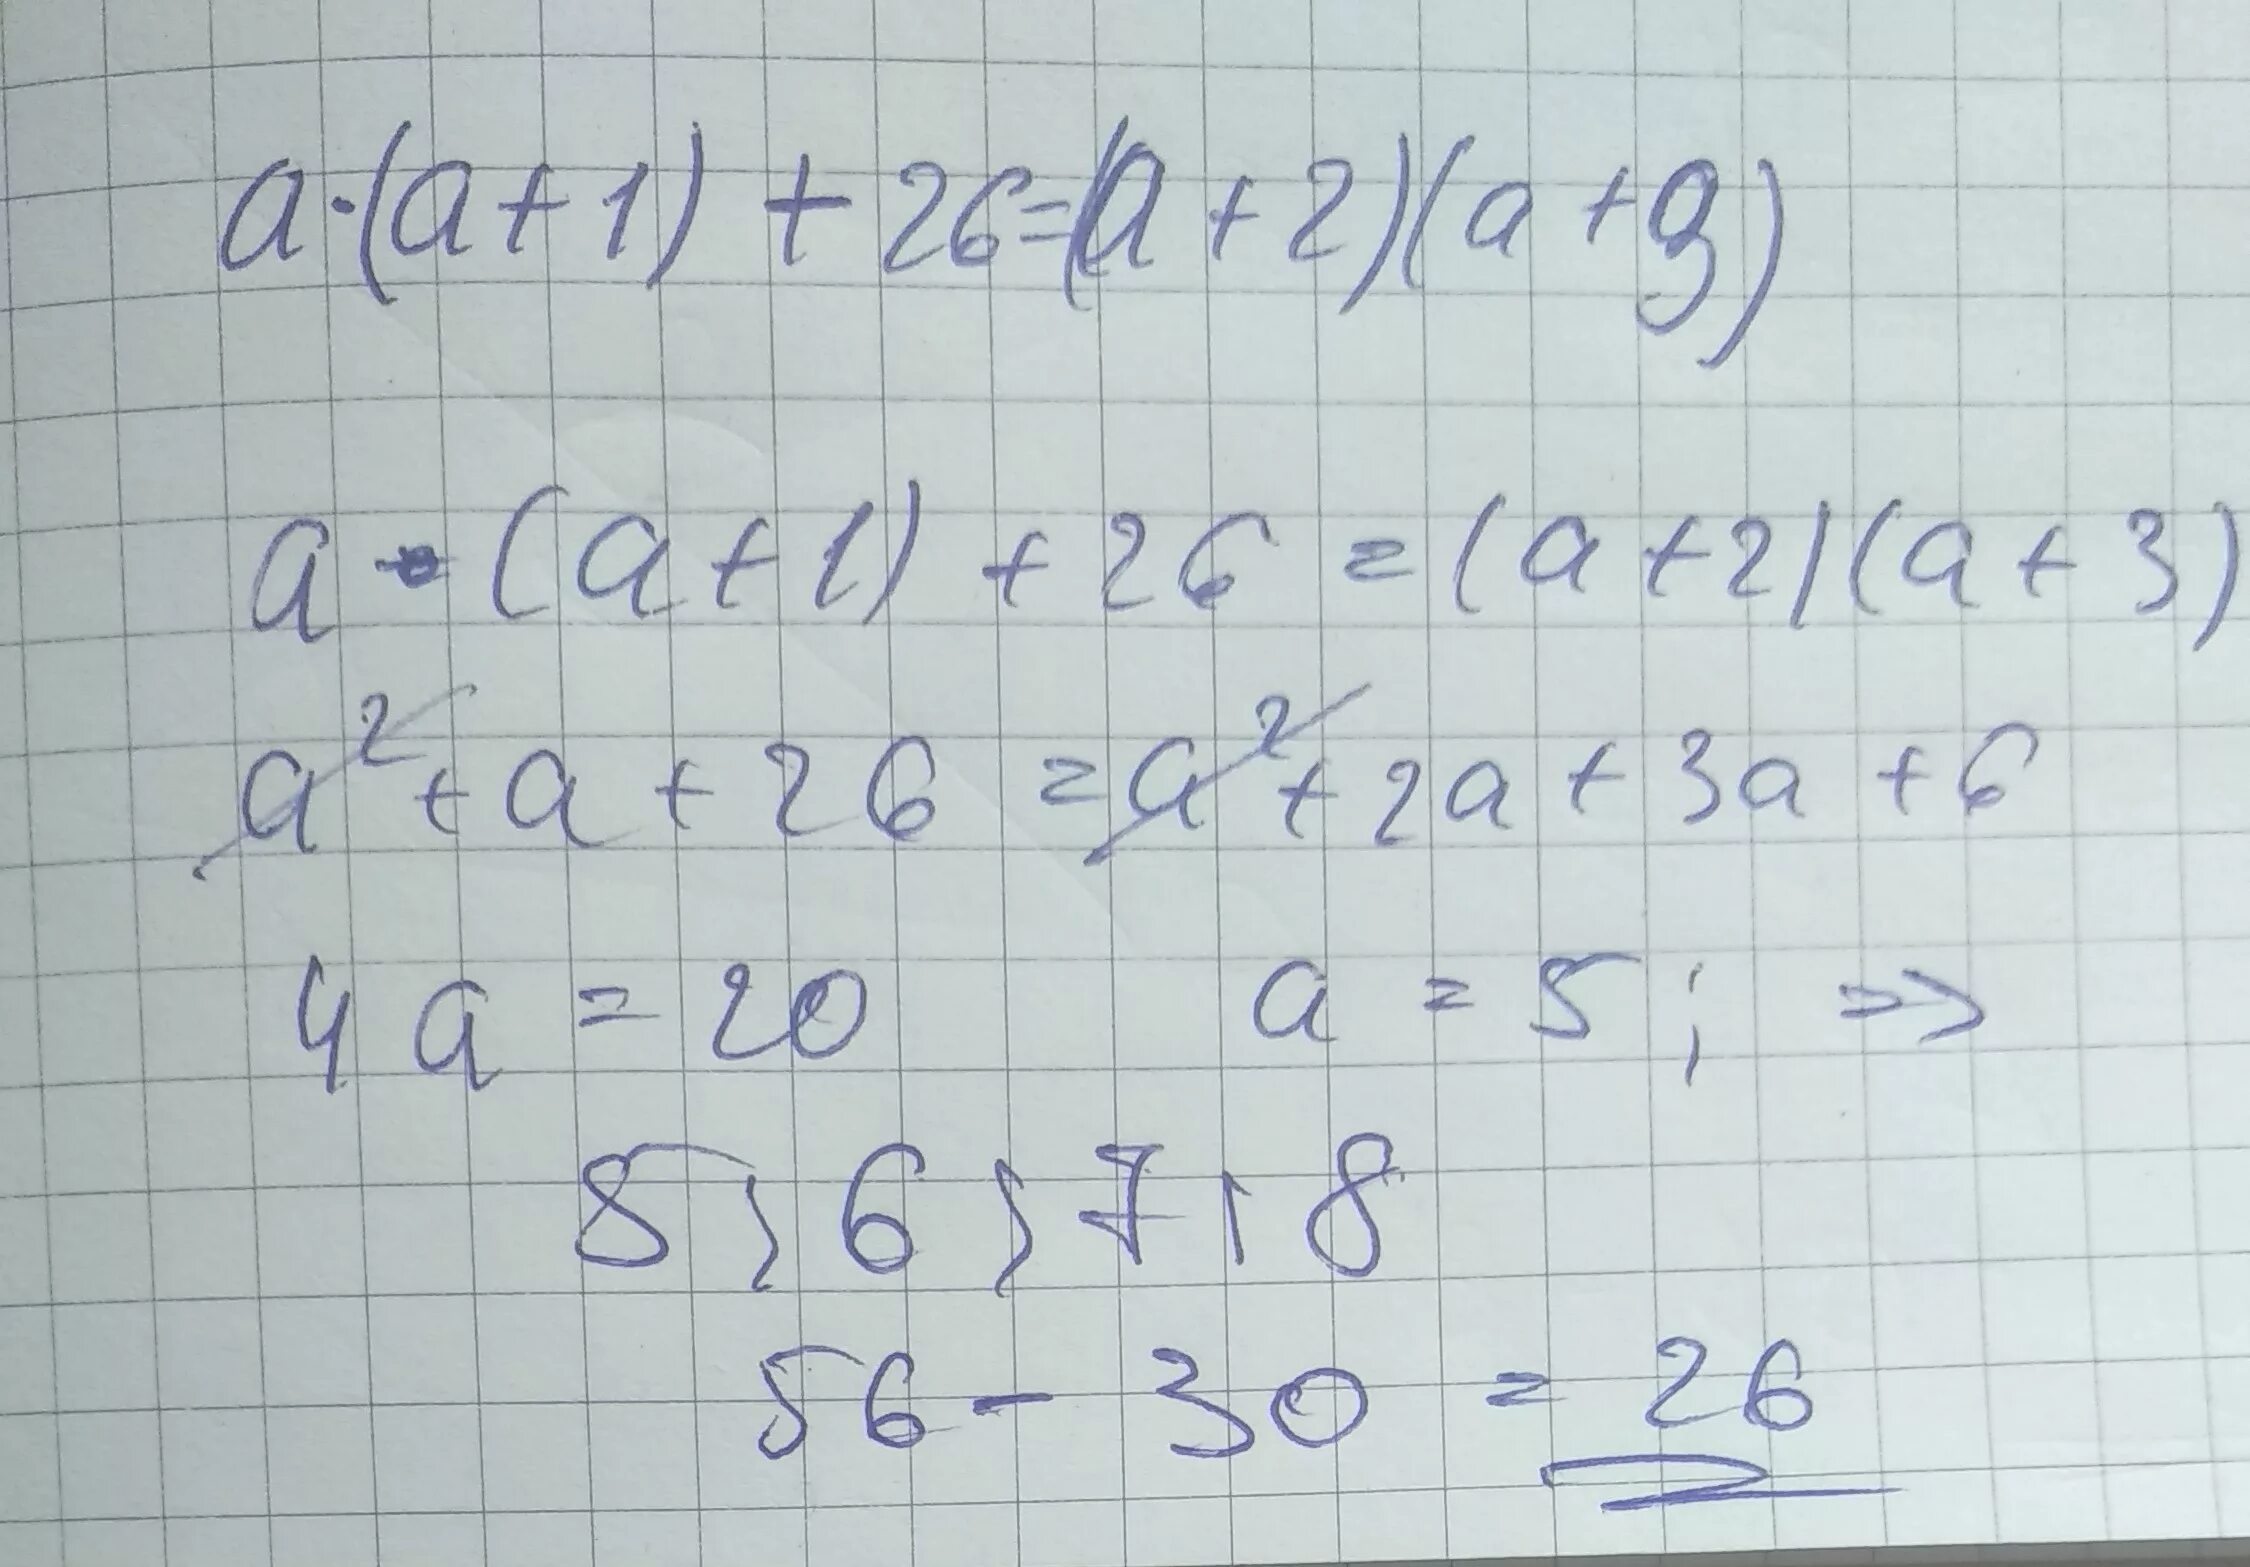 a·(a+1)+26=(a+2)(a+3)
a·(a+1)+26=(a+2)(a+3)
a²+a+26=a²+2a+3a+6
4a=20 a=5; =>
5; 6; 7; 8
56-30=26